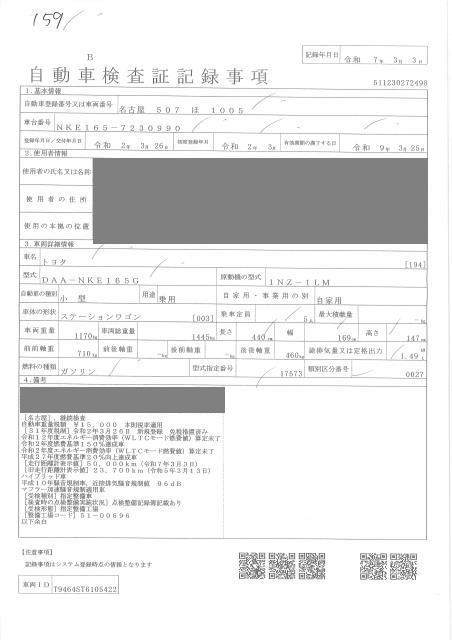 159
B
記録年月日 令和 7年 3月 3日
自動車検査証記録事項
511230272498
1.基本情報
自動車登録番号又は車両番号 名古屋 507 ほ 1005
車台番号 NKE165-7230990
登録年月日/交付年月日 令和 2年 3月 26日 初度登録年月 令和 2年 3月 有効期間の満了する日 令和 9年 3月 25日
2.使用者情報
使用者の氏名又は名称
使用者の住所
使用の本拠の位置
3.車両詳細情報
車名 トヨタ [194]
型式 DAA-NKE165G 原動機の型式 1NZ-1LM
自動車の種別 小型 用途 乗用 自家用・事業用の別 自家用
車体の形状 ステーションワゴン [003] 乗車定員 5人 最大積載量 -kg
車両重量 1170kg 車両総重量 1445kg 長さ 440cm 幅 169cm 高さ 147cm
前前軸重 710kg 前後軸重 -kg 後前軸重 -kg 後後軸重 460kg 総排気量又は定格出力 1.49L
燃料の種類 ガソリン 型式指定番号 17573 類別区分番号 0027
4.備考
[名古屋],継続検査
自動車重量税額 ¥15,000 本則税率適用
[31年度税制]令和2年3月26日 新規登録 免税措置済み
令和12年度エネルギー消費効率(WLTCモード燃費値)算定未了
令和2年度燃費基準150%達成車
令和2年度エネルギー消費効率(WLTCモード燃費値)算定未了
平成27年度燃費基準20%向上達成車
[走行距離計表示値]50,000km(令和7年3月3日)
[旧走行距離計表示値]23,700km(令和5年3月13日)
ハイブリッド車
平成10年騒音規制車,近接排気騒音規制値 96dB
マフラー加速騒音規制適用車
[受検種別]指定整備車
[検査時の点検整備実施状況]点検整備記録簿記載あり
[受検形態]指定整備工場
[整備工場コード]51-00696
以下余白
【注意事項】
記録事項はシステム登録時点の情報となります
車両ID T9464ST6105422